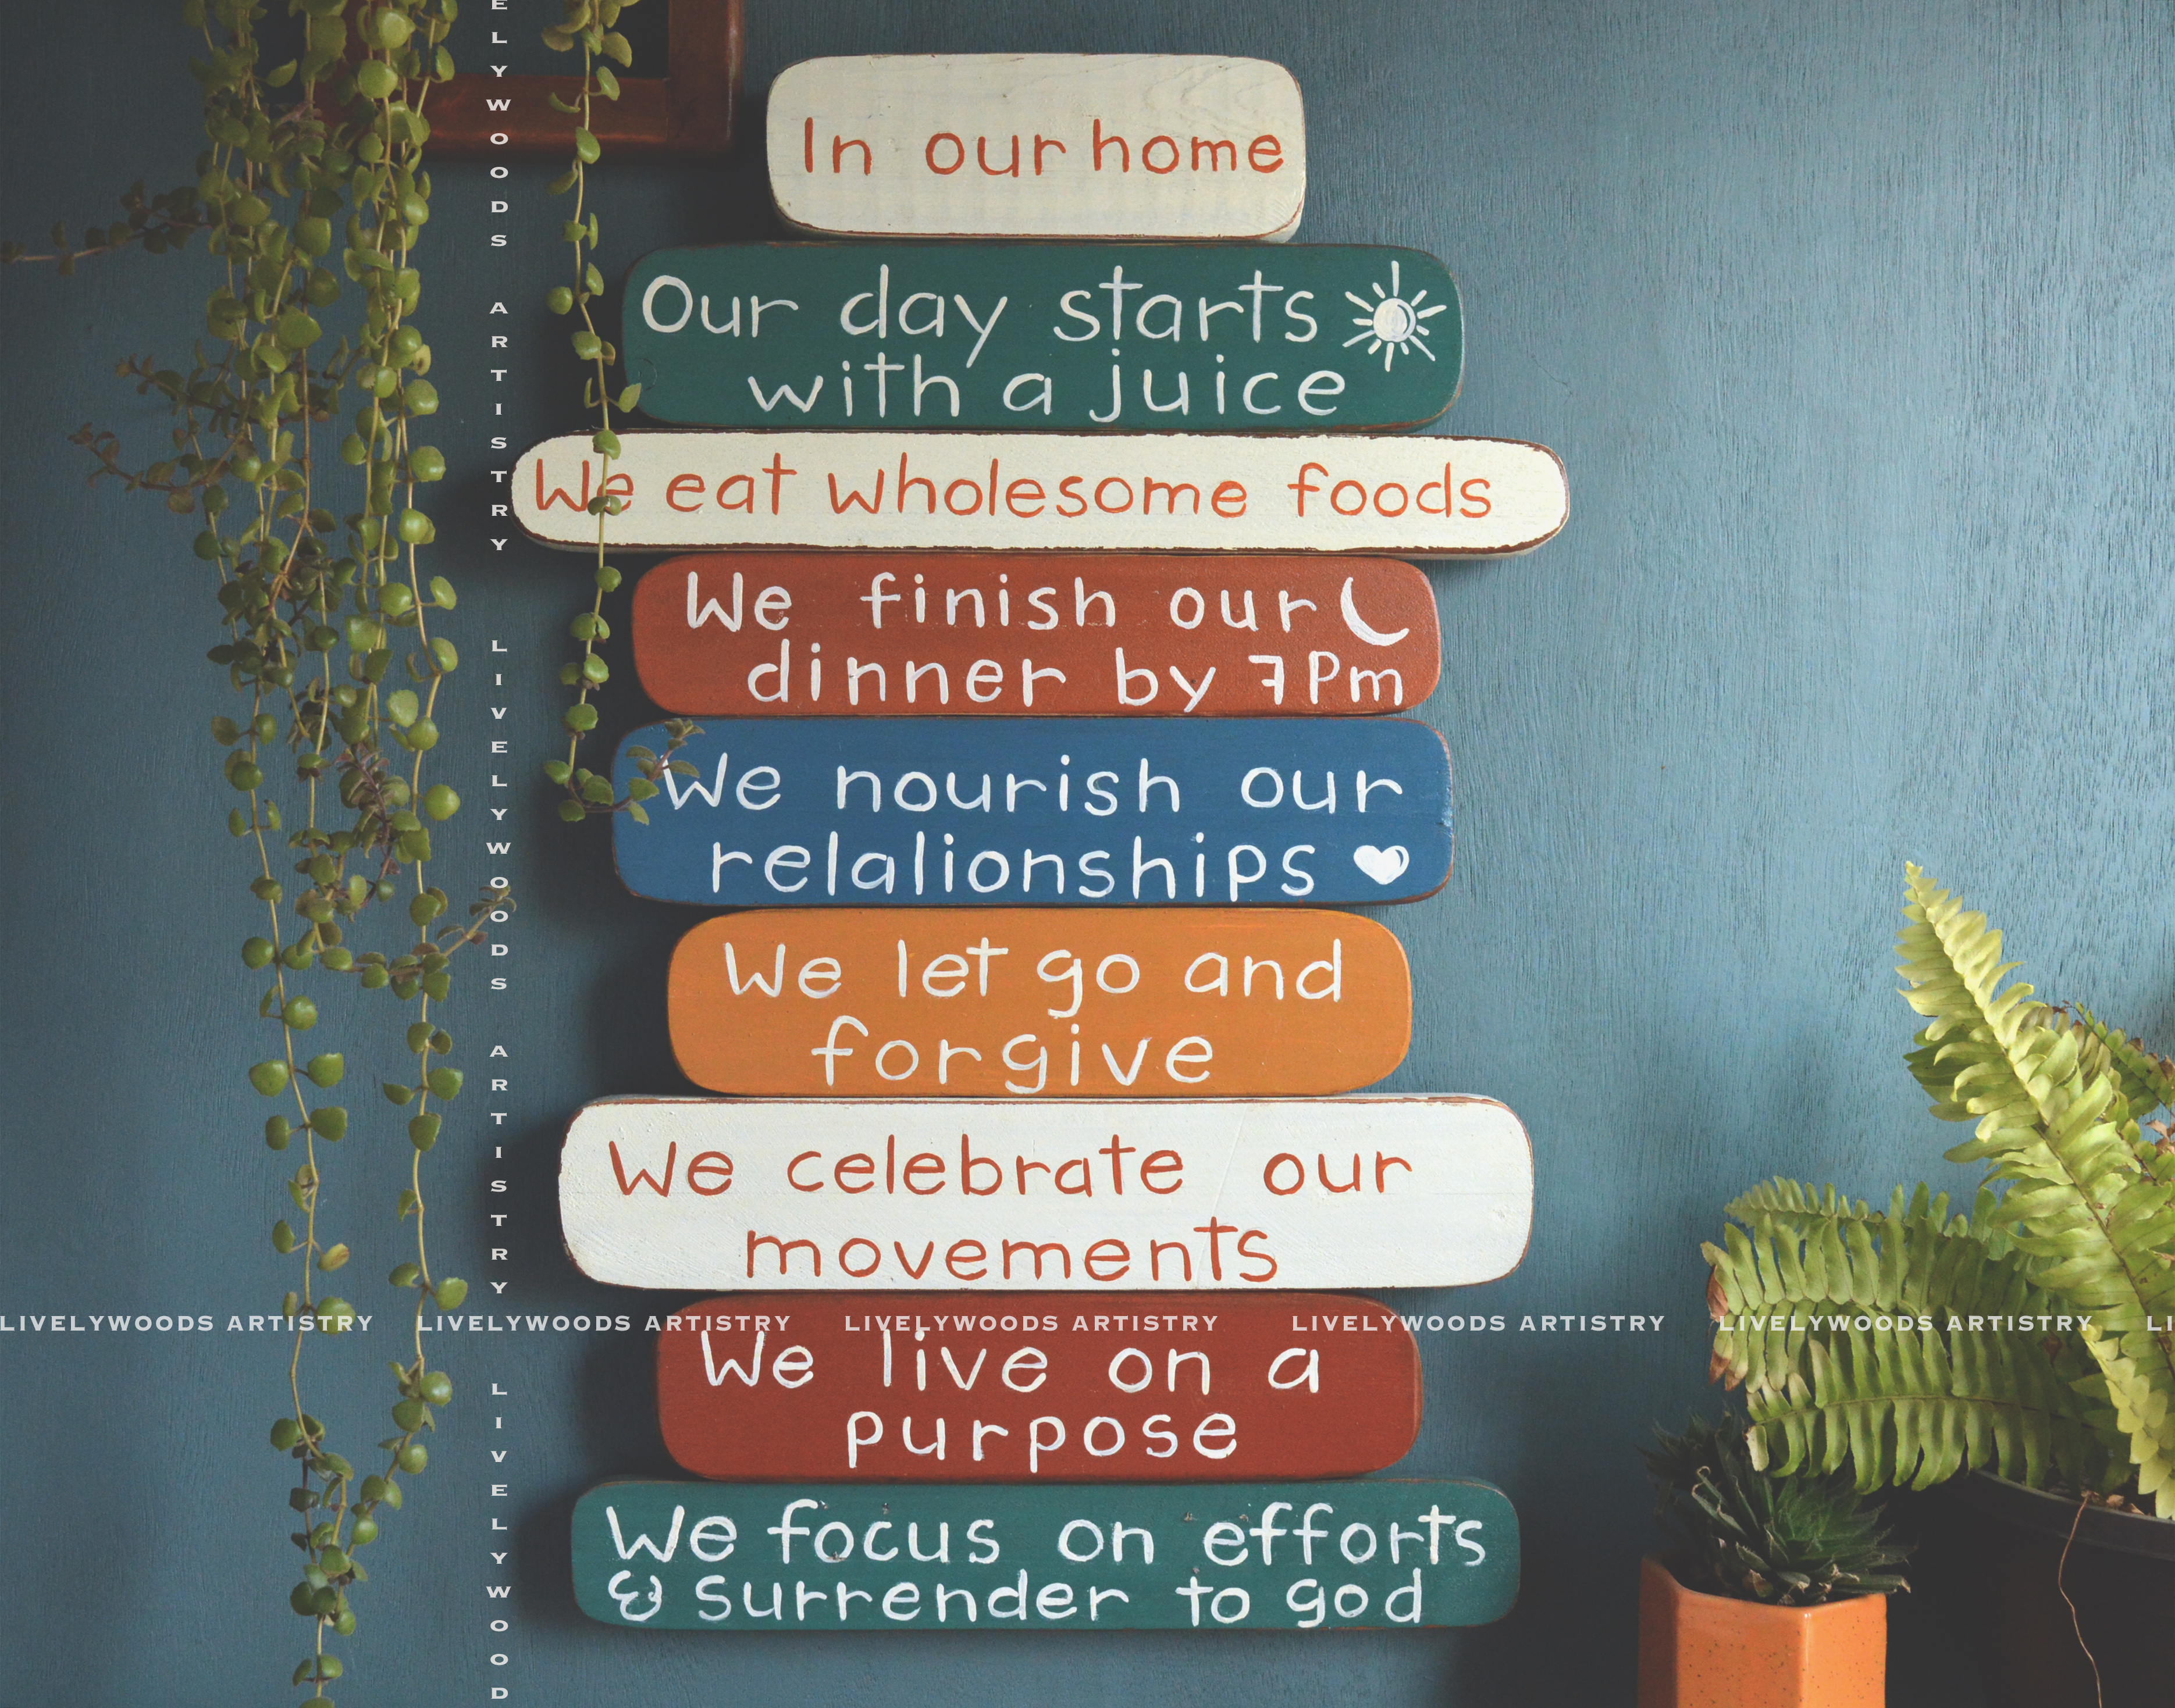 In our home
Our day starts
with a juice
We eat wholesome foods
We finish our
dinner by 7Pm
We nourish our
relalionships
We let go and
forgive
We celebrate our
movements
LIVELYWOODS ARTISTRY LIVELYWOODS ARTISTRY LIVELYWOODS ARTISTRY LIVELYWOODS ARTISTRY LIVELYWOODS ARTISTRY LI
We live on a
purpose
We focus on efforts
& surrender to god
ELYWOODS ARTISTRY LIVELYWOODS ARTISTRY LIVELYWOOD